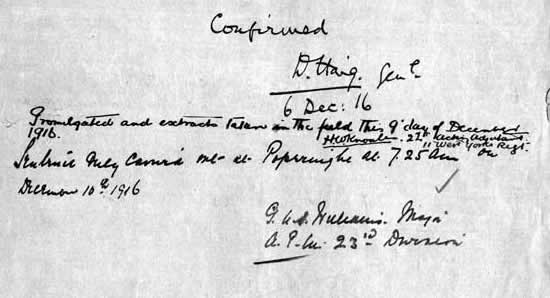 Confirmed
D. Haig. Genl
6 Dec: 16
Promulgated and extracts taken in the field this 9th day of December
1916.
2nd Lt Actg Adjutant
11th West Yorks Regt.
Sentence duly carried out at Poperinghe at 7.25 am on
December 10th 1916
Williams. Major
A.P.M. 23rd Division